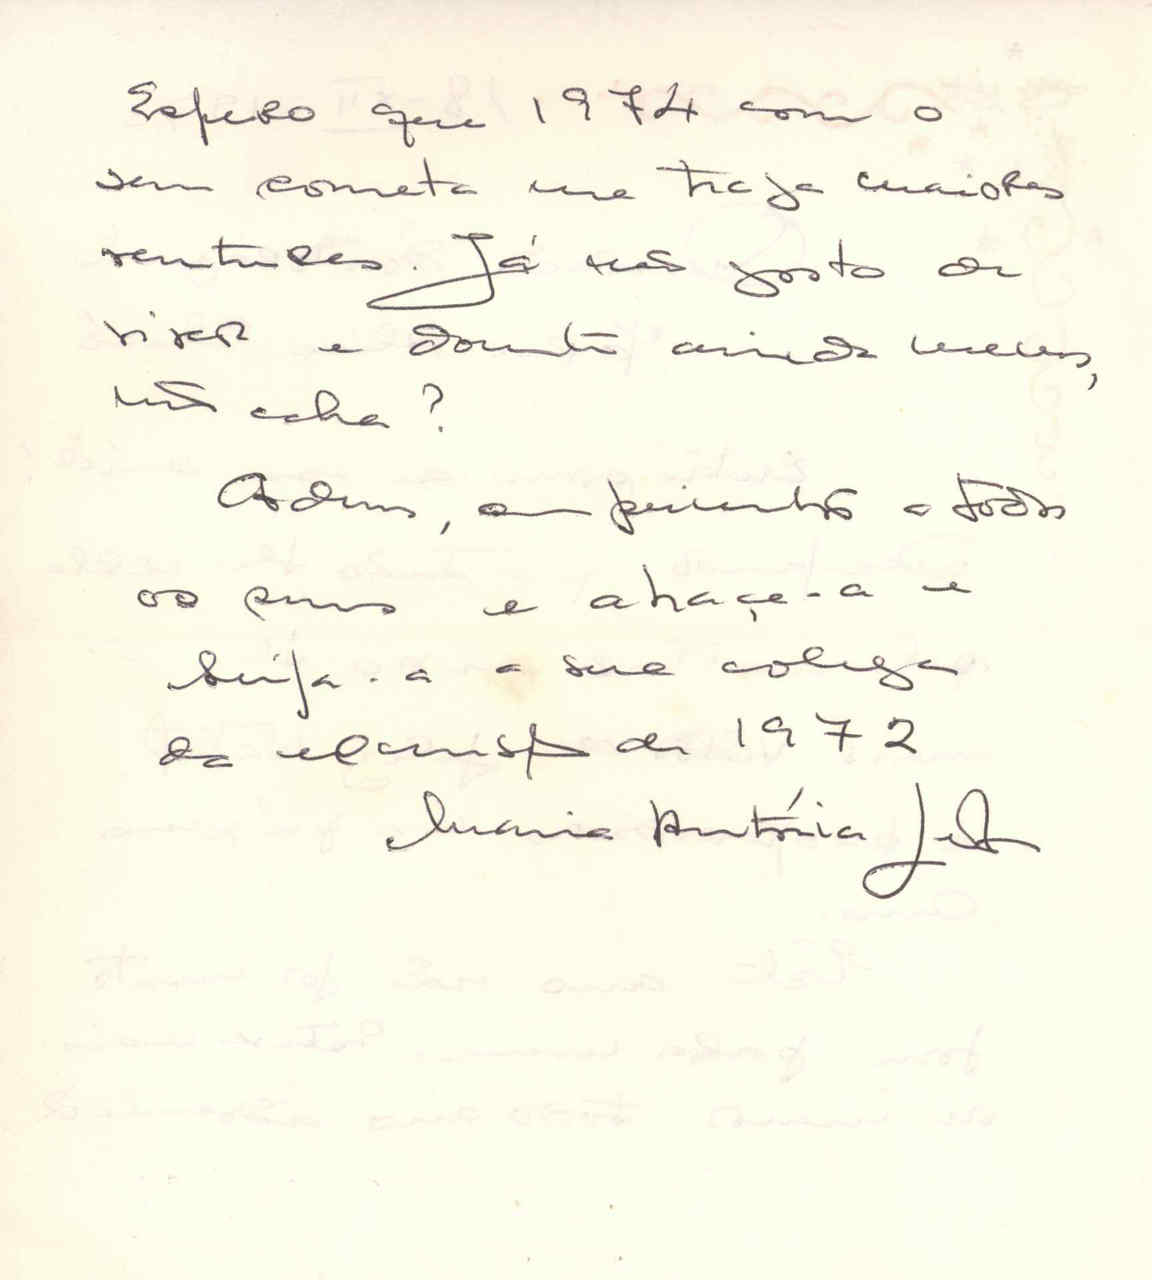 Espero que 1974 com o
seu cometa me traga maiores
venturas. Já não gosto de
viver e doente ainda menos,
não acha?
Adeus, cumprimentos a todos
os seus e abraça-a e
beija-a a sua colega
da de 1972
Maria Antónia